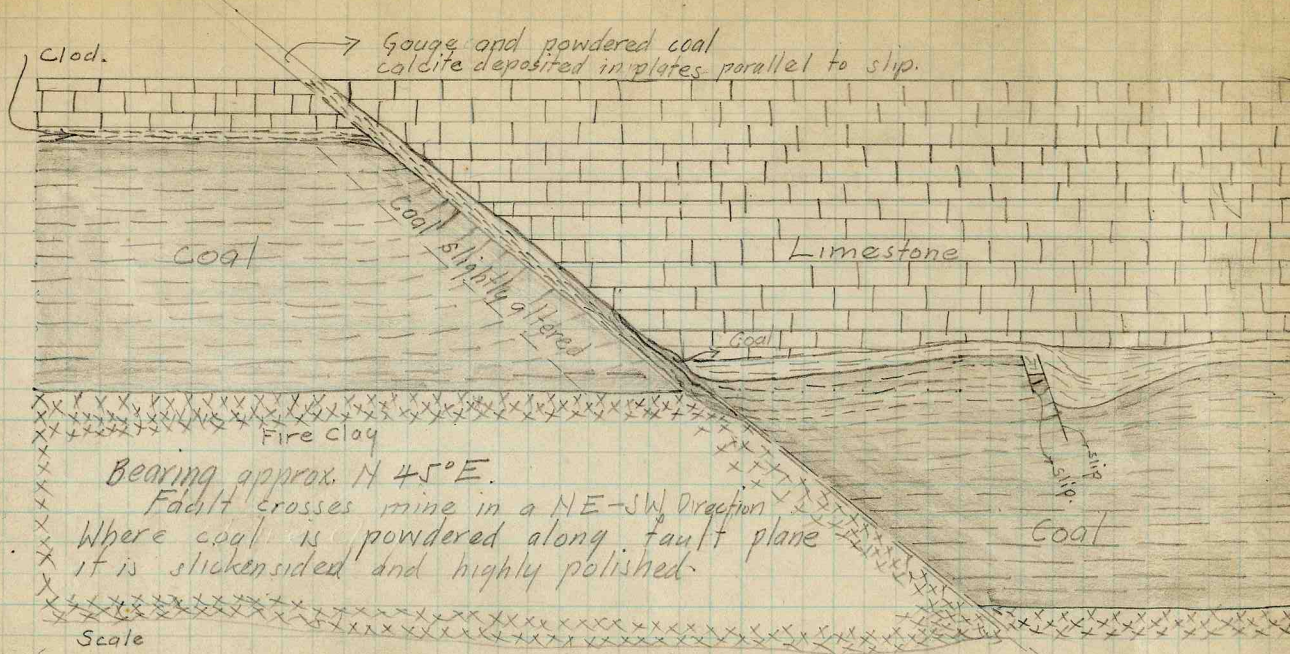 Clod.
Gouge and powdered coal
calcite deposited in plates parallel to slip.
Coal
Coal slightly altered
Limestone
Coal
slip
slip.
Coal
Fire Clay
Bearing approx. N 45° E.
Fault crosses mine in a NE-SW Direction
Where coal is powdered along fault plane
it is slickensided and highly polished.
Scale